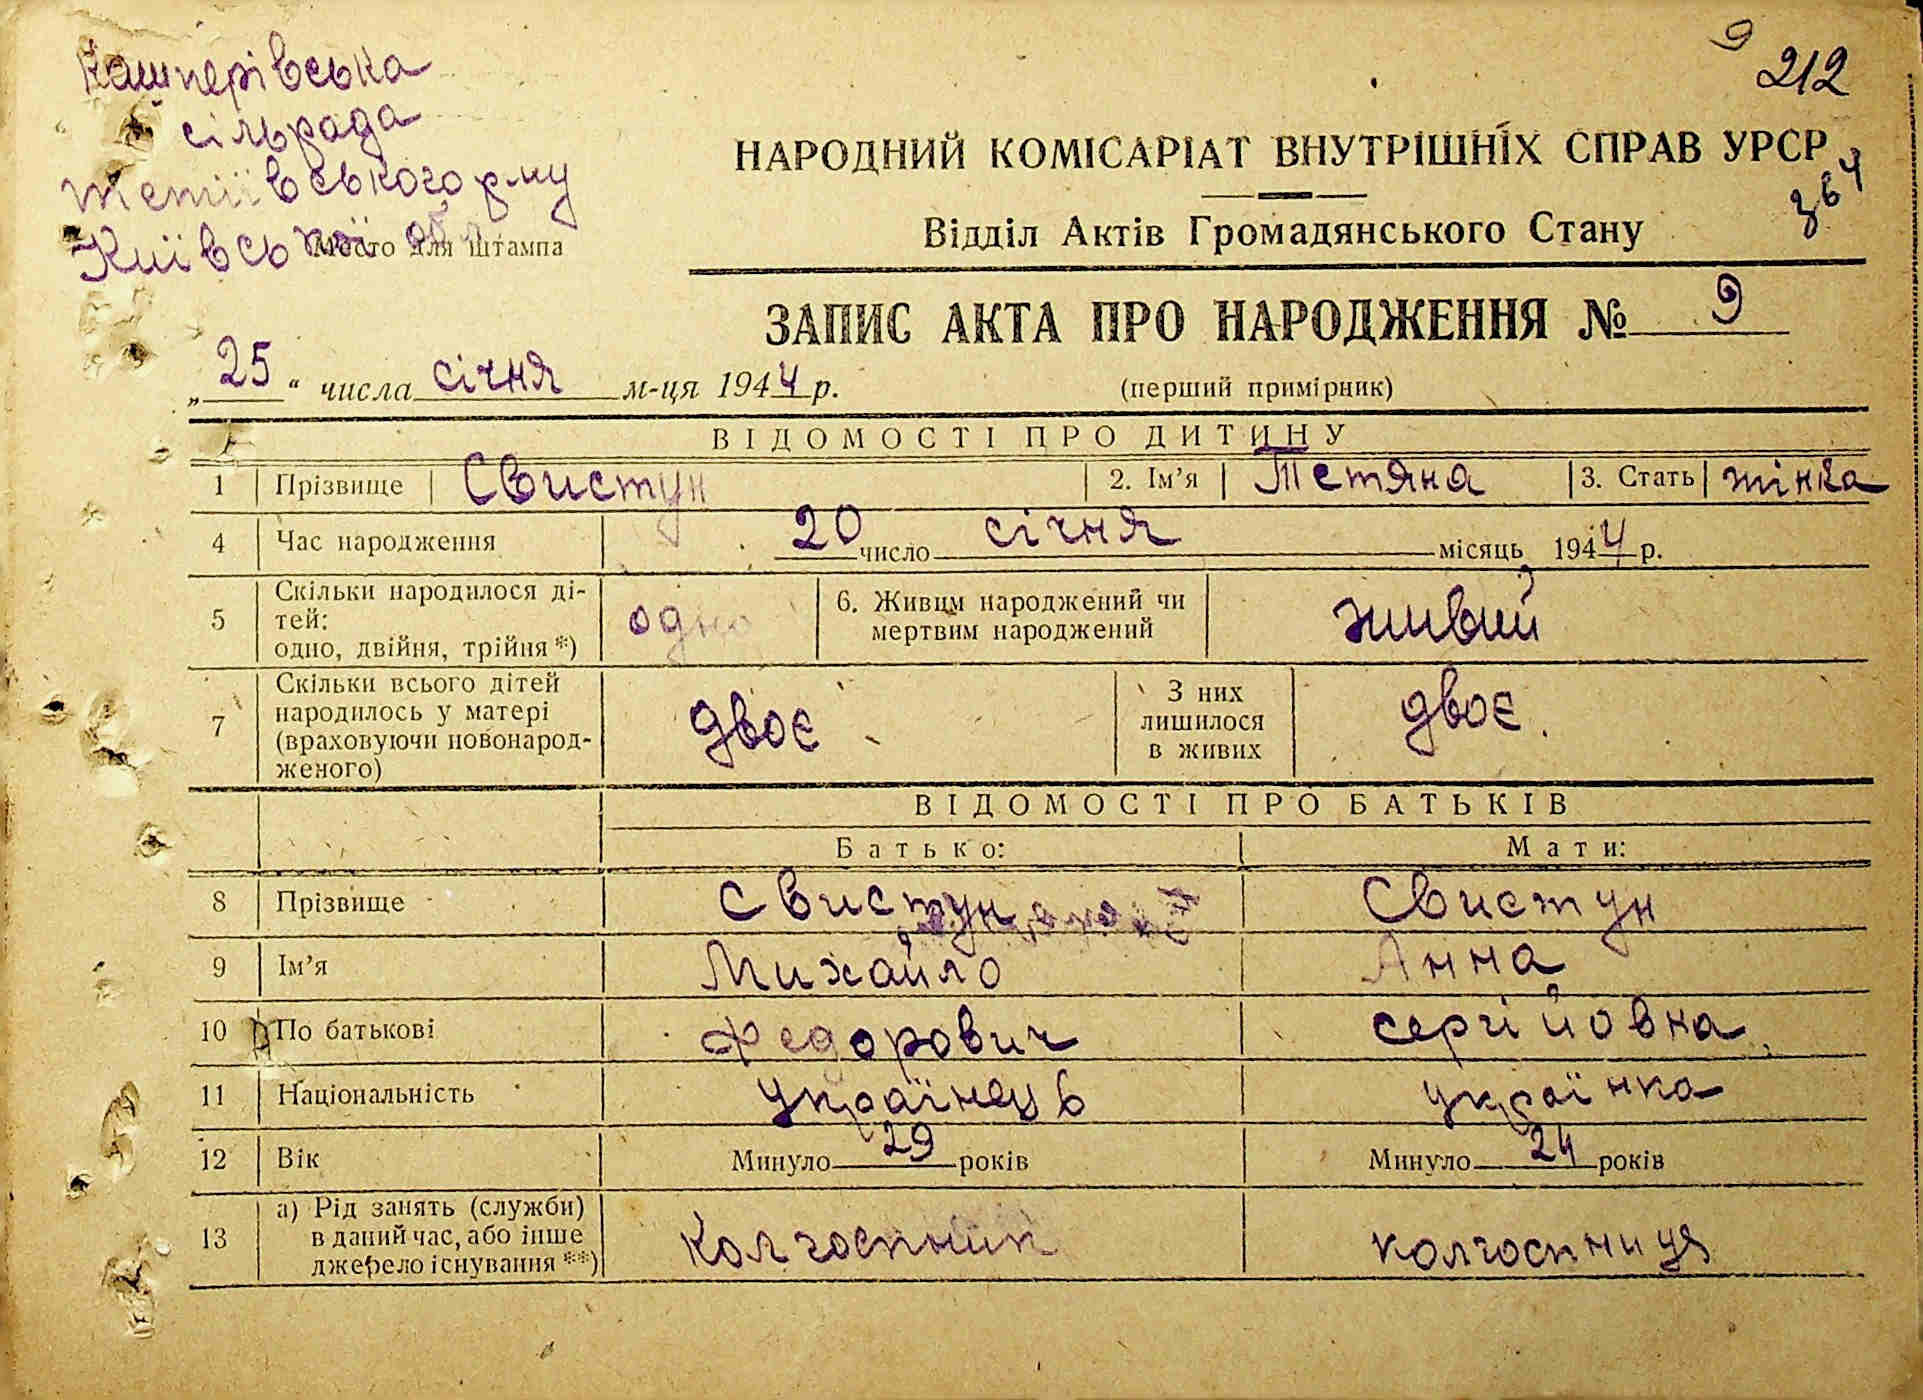 9
212
Кашперівська
сільрада
Тетіївського р-ну
Київської обл.
Место для штампа
НАРОДНИЙ КОМІСАРІАТ ВНУТРІШНІХ СПРАВ УРСР
Відділ Актів Громадянського Стану
ЗАПИС АКТА ПРО НАРОДЖЕННЯ № 9
„25“ числа січня м-ця 1944 р. (перший примірник)
ВІДОМОСТІ ПРО ДИТИНУ
1 Прізвище Свистун 2. Ім’я Тетяна 3. Стать жінка
4 Час народження 20 число січня місяць 1944 р.
5 Скільки народилося ді-
тей:
одно, двійня, трійня *) одно 6. Живим народжений чи
мертвим народжений живий
7 Скільки всього дітей
народилось у матері
(враховуючи новонарод-
женого) двоє З них
лишилося
в живих двоє.
ВІДОМОСТІ ПРО БАТЬКІВ
Батько: Мати:
8 Прізвище Свистун Свистун
9 Ім’я Михайло Анна
10 По батькові Федорович Сергійовна
11 Національність українець українка
12 Вік Минуло 29 років Минуло 24 років
13 а) Рід занять (служби)
в даний час, або інше
джерело існування **) Колгоспник колгоспниця